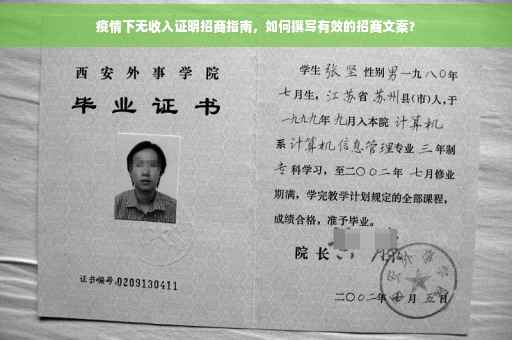 疫情下无收入证明招商指南，如何撰写有效的招商文案?
西安外事学院
毕业证书
证书编号:0209130411
学生 张坚 性别 男 一九八〇年
七月生，江苏省 苏州县(市)人，于
一九九九年 九月入本院 计算机
系 计算机信息管理专业 三 年制
专 科学习，至二〇〇二年 七月修业
期满，学完教学计划规定的全部课程，
成绩合格，准予毕业。
院长
二〇〇二年 月 五日